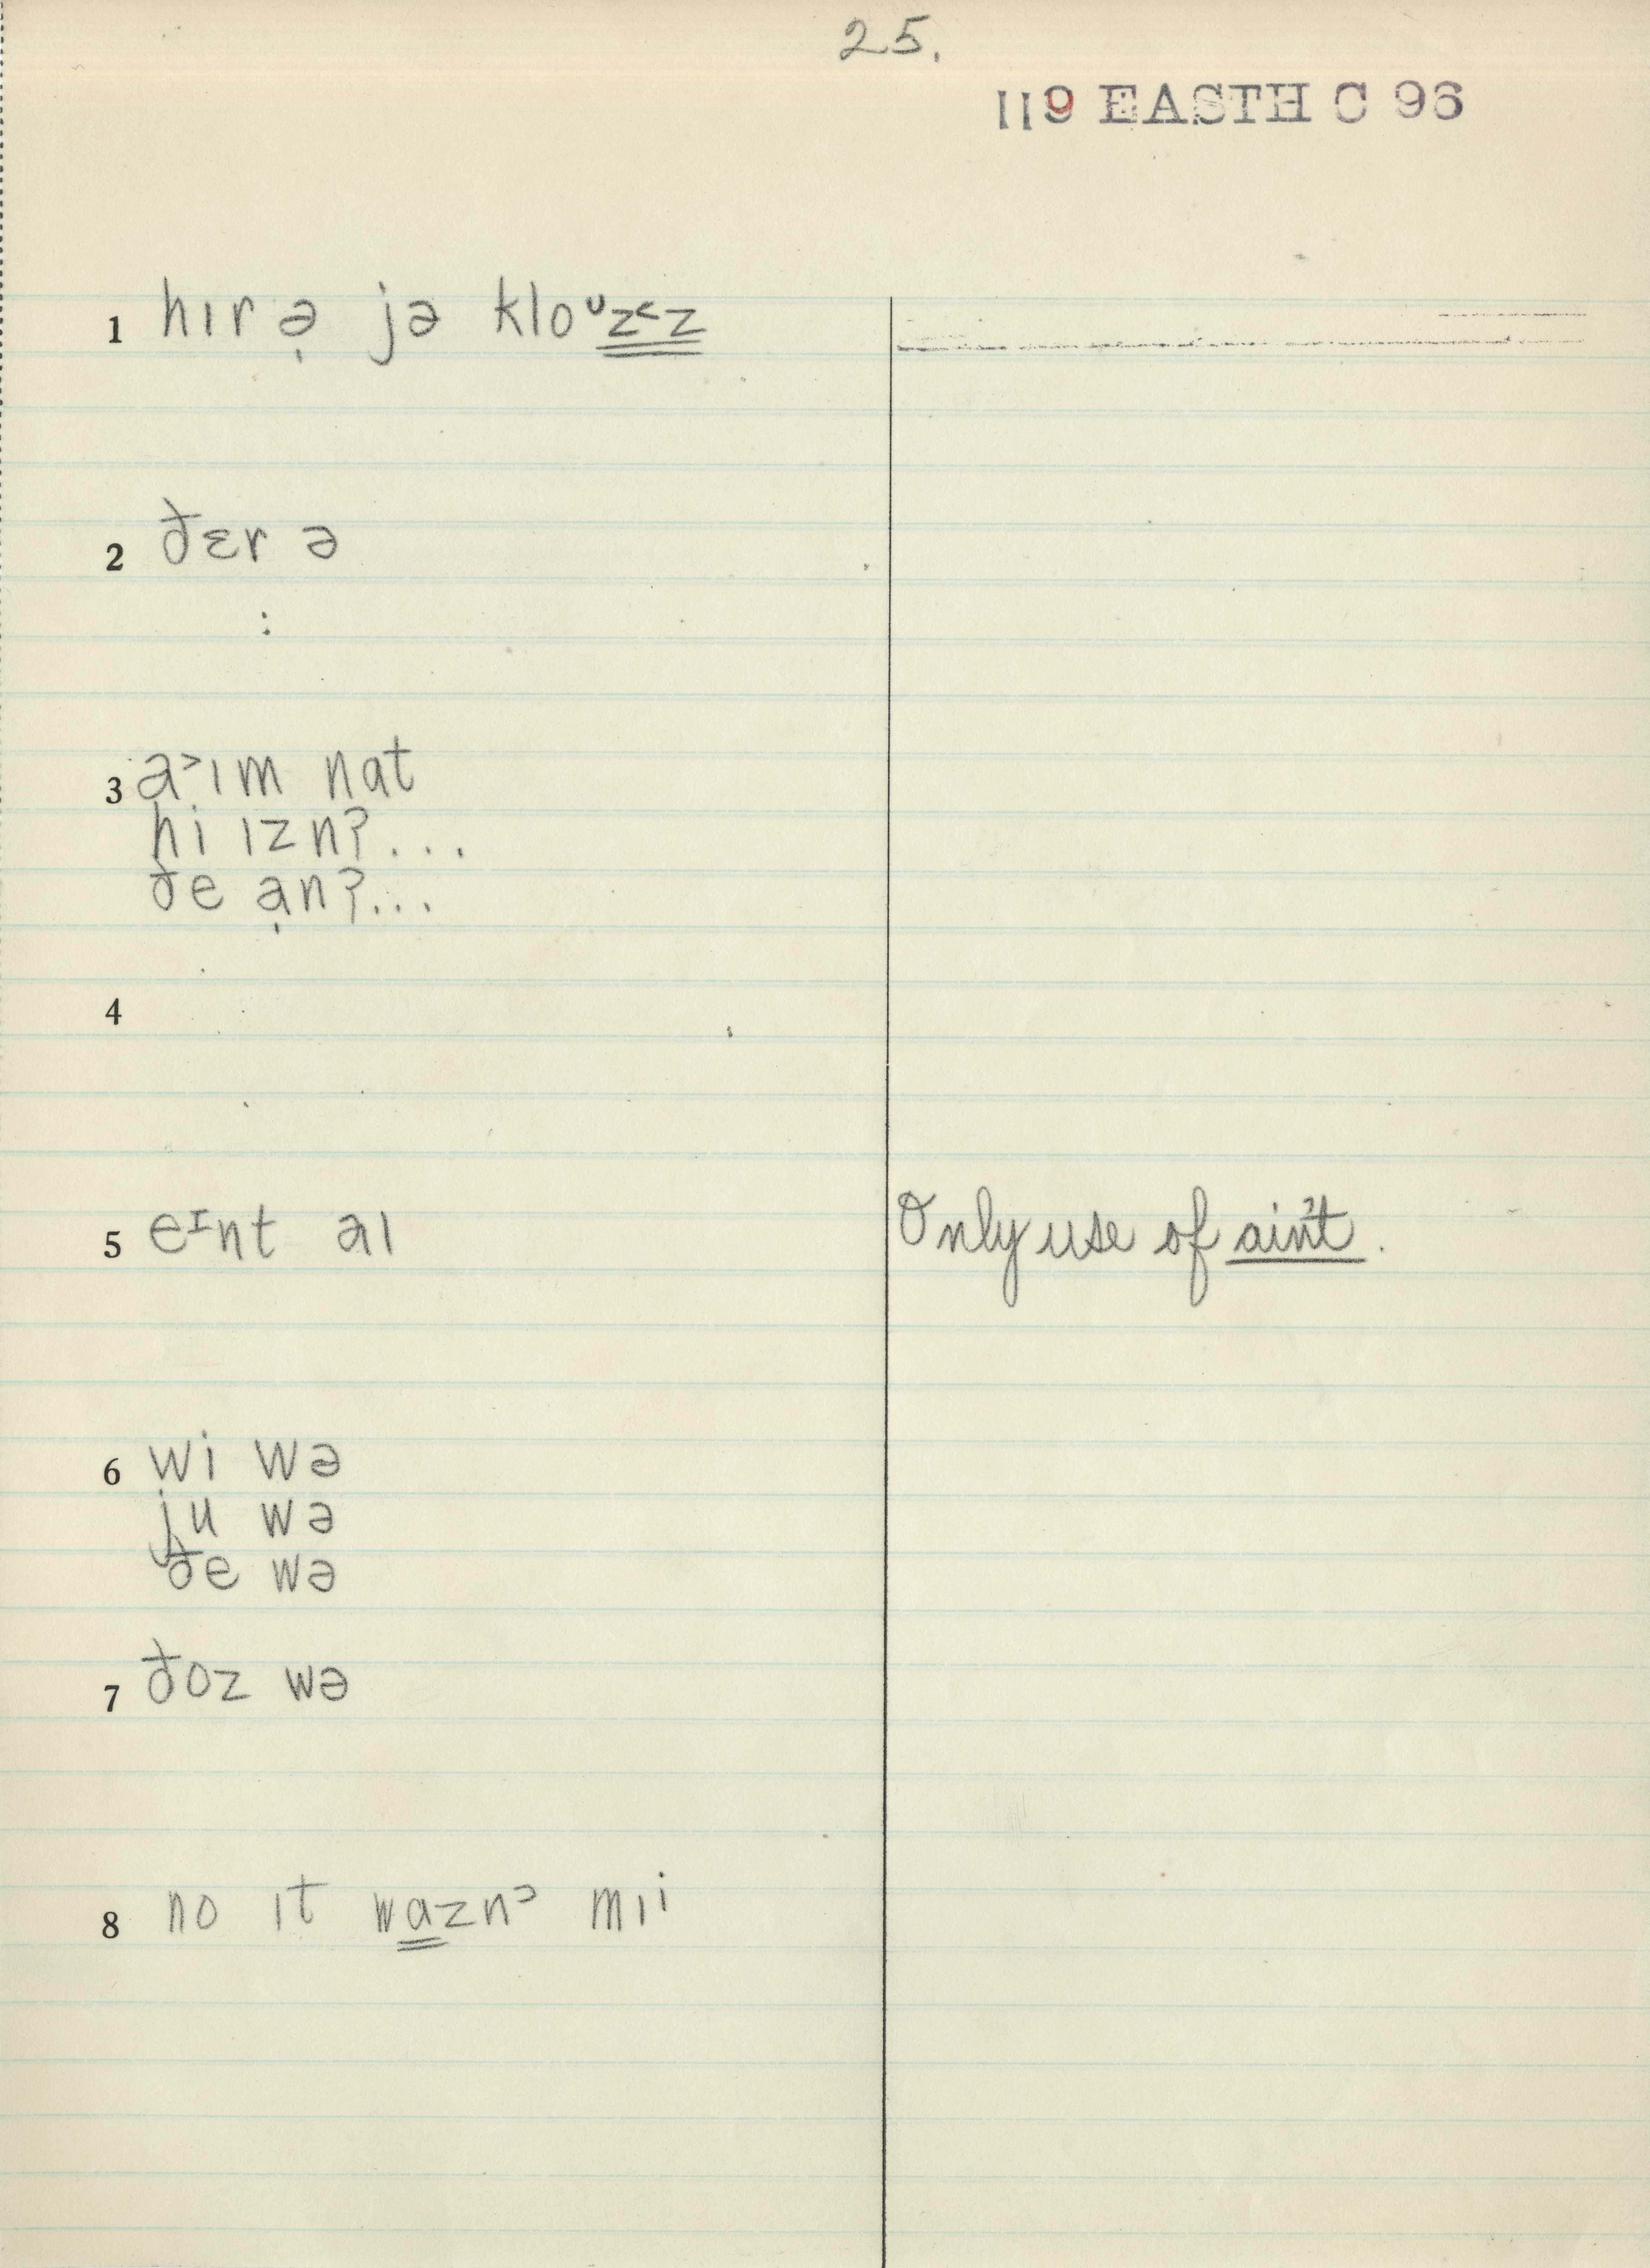 25.
119 EASTH C 96
1 hɪr ə̣ jə kloᶷz˂z
2 ðɛr ə
3 a˃ɪm nat
hi ɪznʔ...
ðe ạnʔ...
4
5 eᶦnt aɪ Only use of ain't.
6 wi wə
ju wə
ðe wə
7 ðoz wə
8 no ɪt wazn˒ mɪi